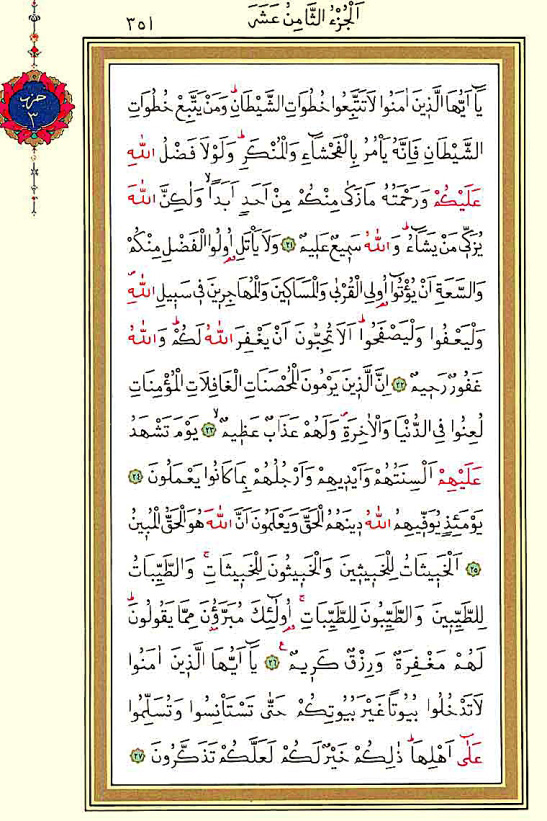 اَلْجُزْءُ الثَّامِنُ عَشَرَ
٣٥١
حزب
٣
يَٓا اَيُّهَا الَّذ۪ينَ اٰمَنُوا لَا تَتَّبِعُوا خُطُوَاتِ الشَّيْطَانِۜ وَمَنْ يَتَّبِعْ خُطُوَاتِ
الشَّيْطَانِ فَاِنَّهُ يَأْمُرُ بِالْفَحْشَٓاءِ وَالْمُنْكَرِۜ وَلَوْلَا فَضْلُ اللّٰهِ
عَلَيْكُمْ وَرَحْمَتُهُ مَا زَكٰى مِنْكُمْ مِنْ اَحَدٍ اَبَدًاۙ وَلٰكِنَّ اللّٰهَ
يُزَكّ۪ي مَنْ يَشَٓاءُۜ وَاللّٰهُ سَم۪يعٌ عَل۪يمٌ ﴿٢١﴾ وَلَا يَأْتَلِ اُو۬لُوا الْفَضْلِ مِنْكُمْ
وَالسَّعَةِ اَنْ يُؤْتُٓوا اُو۬لِي الْقُرْبٰى وَالْمَسَاك۪ينَ وَالْمُهَاجِر۪ينَ ف۪ي سَب۪يلِ اللّٰهِۖ
وَلْيَعْفُوا وَلْيَصْفَحُواۜ اَلَا تُحِبُّونَ اَنْ يَغْفِرَ اللّٰهُ لَكُمْۜ وَاللّٰهُ
غَفُورٌ رَح۪يمٌ ﴿٢٢﴾ اِنَّ الَّذ۪ينَ يَرْمُونَ الْمُحْصَنَاتِ الْغَافِلَاتِ الْمُؤْمِنَاتِ
لُعِنُوا فِي الدُّنْيَا وَالْاٰخِرَةِۖ وَلَهُمْ عَذَابٌ عَظ۪يمٌۙ ﴿٢٣﴾ يَوْمَ تَشْهَدُ
عَلَيْهِمْ اَلْسِنَتُهُمْ وَاَيْد۪يهِمْ وَاَرْجُلُهُمْ بِمَا كَانُوا يَعْمَلُونَ ﴿٢٤﴾
يَوْمَئِذٍ يُوَفّ۪يهِمُ اللّٰهُ د۪ينَهُمُ الْحَقَّ وَيَعْلَمُونَ اَنَّ اللّٰهَ هُوَ الْحَقُّ الْمُب۪ينُ
﴿٢٥﴾ اَلْخَب۪يثَاتُ لِلْخَب۪يث۪ينَ وَالْخَب۪يثُونَ لِلْخَب۪يثَاتِۚ وَالطَّيِّبَاتُ
لِلطَّيِّب۪ينَ وَالطَّيِّبُونَ لِلطَّيِّبَاتِۚ اُو۬لٰٓئِكَ مُبَرَّؤُ۫نَ مِمَّا يَقُولُونَۜ
لَهُمْ مَغْفِرَةٌ وَرِزْقٌ كَر۪يمٌ۟ ﴿٢٦﴾ يَٓا اَيُّهَا الَّذ۪ينَ اٰمَنُوا
لَا تَدْخُلُوا بُيُوتًا غَيْرَ بُيُوتِكُمْ حَتّٰى تَسْتَأْنِسُوا وَتُسَلِّمُوا
عَلٰٓى اَهْلِهَاۜ ذٰلِكُمْ خَيْرٌ لَكُمْ لَعَلَّكُمْ تَذَكَّرُونَ ﴿٢٧﴾